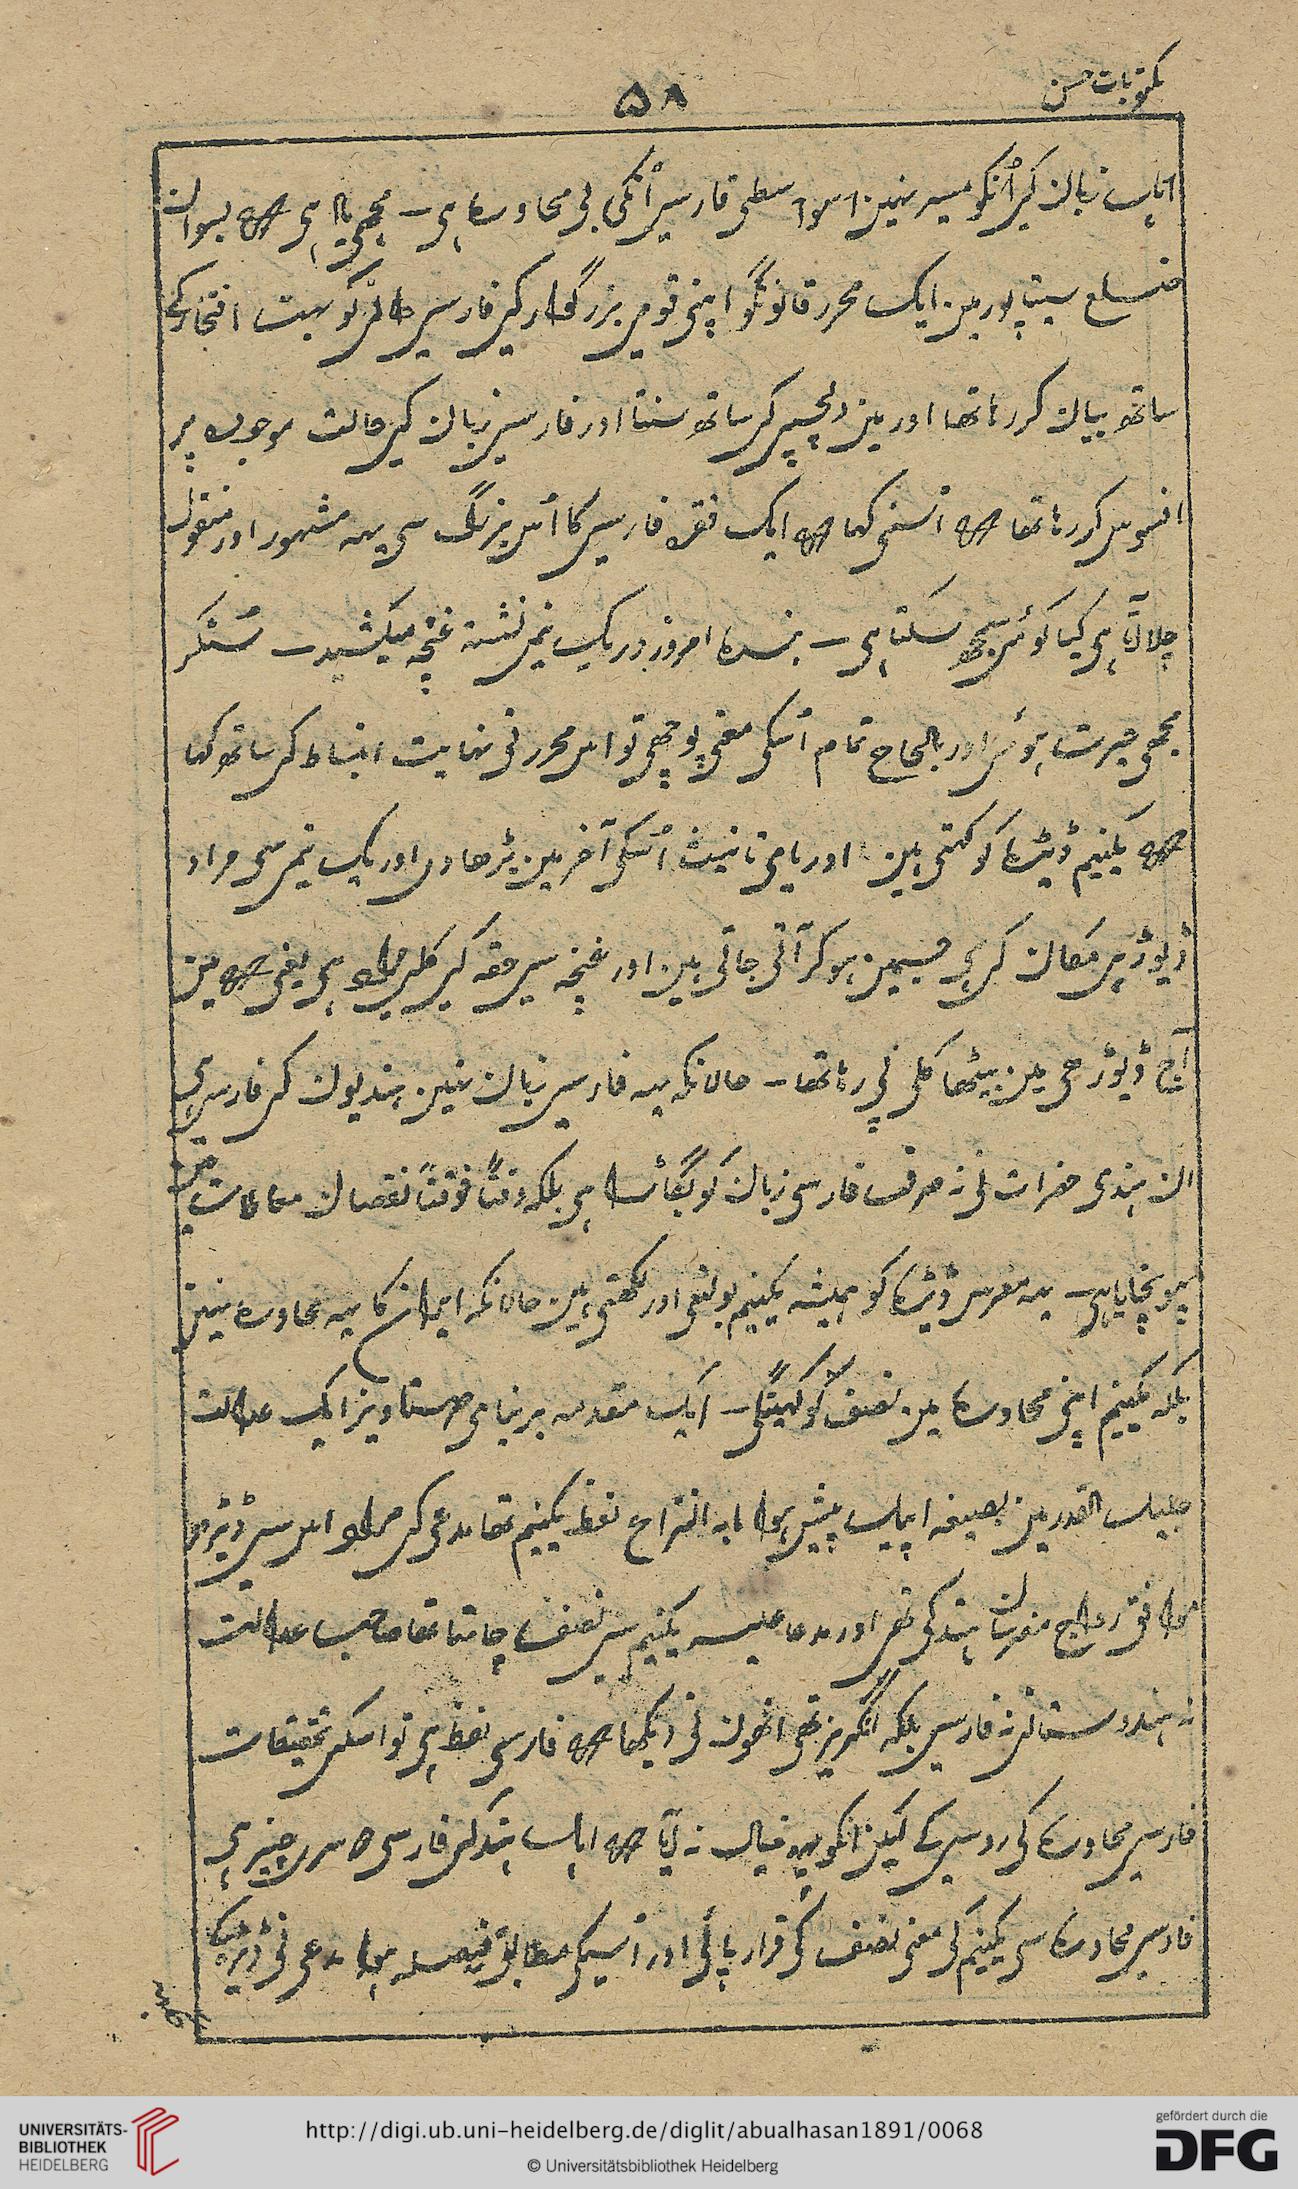 مکتوبات حسن
۵۸
اہل زبان کی اُنکو میسر نہین اسواسطی فارسی اُنکی بی محاورہ ہی — مجھی یاد ہی کہ بسوان
ضلع سیتاپور مین ایک محرر قانونگو اپنی قومی بزرگوار کی فارسی دانی کو بہت افتخار کی
ساتھہ بیان کر رہا تھا اور مین دلچسپی کی ساتھہ سنتا اور فارسی زبان کی حالت موجودہ پر
افسوس کر رہا تھا کہ اُسنی کہا کہ ایک فقرہ فارسی کا اُس بزرگ سی یہہ مشہور اور منقول
چلا آتا ہی کیا کوئی سمجھہ سکتا ہی — بندہ امروز در یک نیمی نشستہ غنچہ میکشید — سُنکر
مجھی حیرت ہوئی اور بالحاح تمام اُسکی معنی پوچھی تو اس محرر نی نہایت انبساط کی ساتھہ کہا
کہ یکنیم ڈیڑہ کو کہتی ہین اور یای تانیث اُسکی آخر مین بڑھا دی اور یک نیمی سی مراد
ڈیوڑہی مکان کی ہی جسمین ہو کر آتی جاتی ہین اور غنچہ سی حقہ کی کلی مراد ہی یعنی کہ مین
آج ڈیوڑھی مین بیٹھا کلی پی رہا تھا — حالانکہ یہہ فارسی زبان نہین ہندیون کی فارسی ہی
ان ہندی حضرات نی نہ صرف فارسی زبان کو بگاڑا ہی بلکہ وقتاً فوقتاً نقصان معاملات مین
پہونچایا ہی — یہہ مفرس ڈیڑہ کو ہمیشہ یکنیم بولتی اور لکھتی ہین حالانکہ ایران کا یہہ محاورہ نہین
بلکہ یکنیم اپنی محاورہ مین نصف کو کہینگی — ایک مقدمہ بر بنای دستاویز ایک عدالت
جلیل القدر مین بصیغہ اپیل پیش ہوا مابہ النزاع لفظ یکنیم تھا مدعی کی مراد اس سی ڈیڑہ
موافق رواج مفرسان ہند کی تھی اور مدعا علیہ یکنیم سی نصف چاہتا تھا صاحب عدالت
نہ ہندوستانی نہ فارسی بلکہ انگریز تھی انھون نی دیکھا کہ فارسی لفظ ہی تو اسکی تحقیقات
فارسی محاورہ کی رو سی کی لیکن انکو یہہ خیال نہ آیا کہ اہل ہند کی فارسی دوسری چیز ہی
فارسی محاورہ سی یکنیم کی معنی نصف کی قرار پائی اور اُسیکی مطابق فیصلہ ہوا مدعی نی ڈیڑہ
http://digi.ub.uni-heidelberg.de/diglit/abualhasan1891/0068
© Universitätsbibliothek Heidelberg
UNIVERSITÄTS-
BIBLIOTHEK
HEIDELBERG
gefördert durch die
DFG